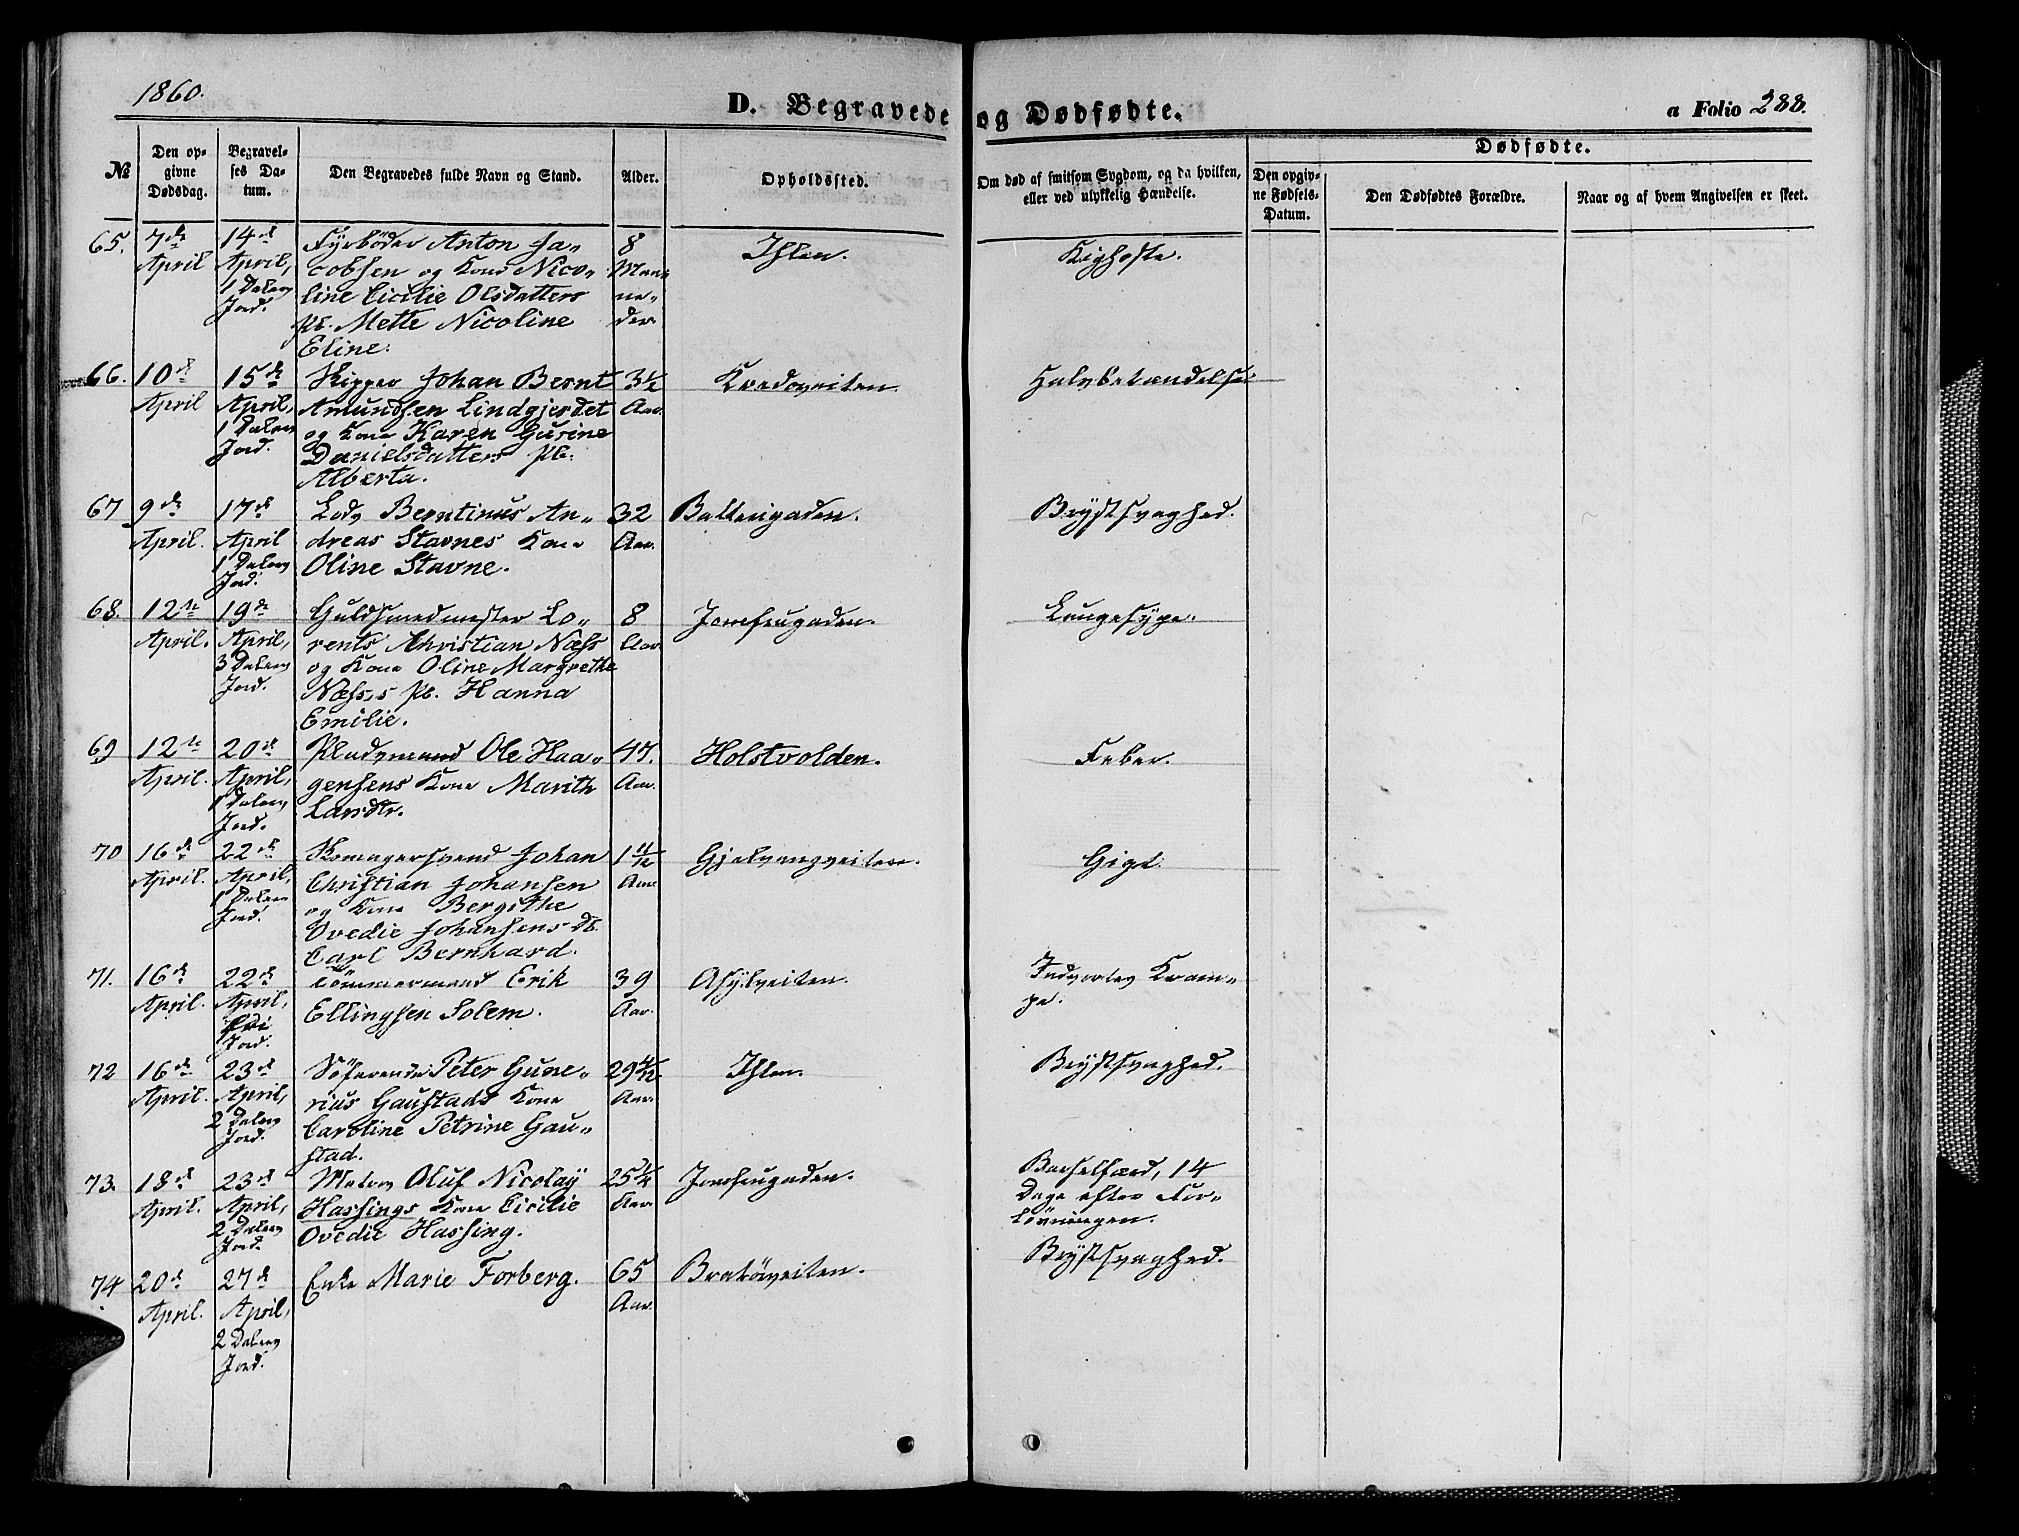 1860.
D. Begravede og Dødfødte.
a Folio 288.
№
Den opgivne Dødsdag.
Begravelses Datum.
Den Begravedes fulde Navn og Stand.
Alder.
Opholdssted.
Om død af smitsom Sygdom, og da hvilken, eller ved ulykkelig Hændelse.
Dødfødte.
Den opgivne Fødsels-Datum.
Den Dødfødtes Forældre.
Naar og af hvem Angivelsen er skeet.
65. 7de 14de Fyrbøder Anton Ja- 8 Ihlen. Kighoste.
April April, cobsen og Kone Nico- Maa-
1 Dalers line Cicilie Olsdatters ne-
Jord. Mette Nicoline der.
Eline.
66. 10de 15de Skipper Johan Bernt 3½ Halsbetændelse.
April April, Amundsen Lindgjerdet Aar.
1 Dalers og Kone Karen Gurine
Jord. Danielsdatters
Alberta.
67 9de 17de Berntinus An- 32 Brystsvaghed.
April. April dreas Stavnes Kone Aar.
1 Dalers Oline Stavne.
Jord.
68. 12te 19de Guldsmedmester Lo- 8 Jomfrugaden.
April. April, rents Christian Næss Aar.
3 Dalers og Kone Oline Margrethe
Jord. Næss,s Hanna
Emilie.
69 12te 20de Ole Haa- 47. Holstvolden. Feber.
April. April, gensens Kone Marith Aar.
1 Dalers Larsdtr.
Jord.
70 16de 22de Johan 1 11/12 Gjelvangveiten. Gigt.
April. April, Christian Johansen Aar.
1 Dalers og Kone Bergithe
Jord. Ovedie Johansens
Carl Bernhard.
71. 16de 22de Tömmermand Erik 39 Asylveiten. Indvortes Kram-
April. April, Ellingsen Solem. Aar. pe.
fri
Jord.
72 16de 23de Söfarende Peter Gune- 29 Ihlen. Brystsvaghed.
April. April, rius Gaustads Kone Aar.
2 Dalers Caroline Petrine Gau-
Jord. stad.
73. 18de 23de Oluf Nicolay 25¼ Jomfrugaden. Barselfærd, 14
April. April, Hassings Kone Cicilie Aar. Dage efter For-
2 Dalers Ovedie Hassing. lösningen.
Jord.
74 20de 27de Enke Marie Forberg. 65 Bratöveiten. Brystsvaghed.
April. April, Aar.
2 Dalers
Jord.